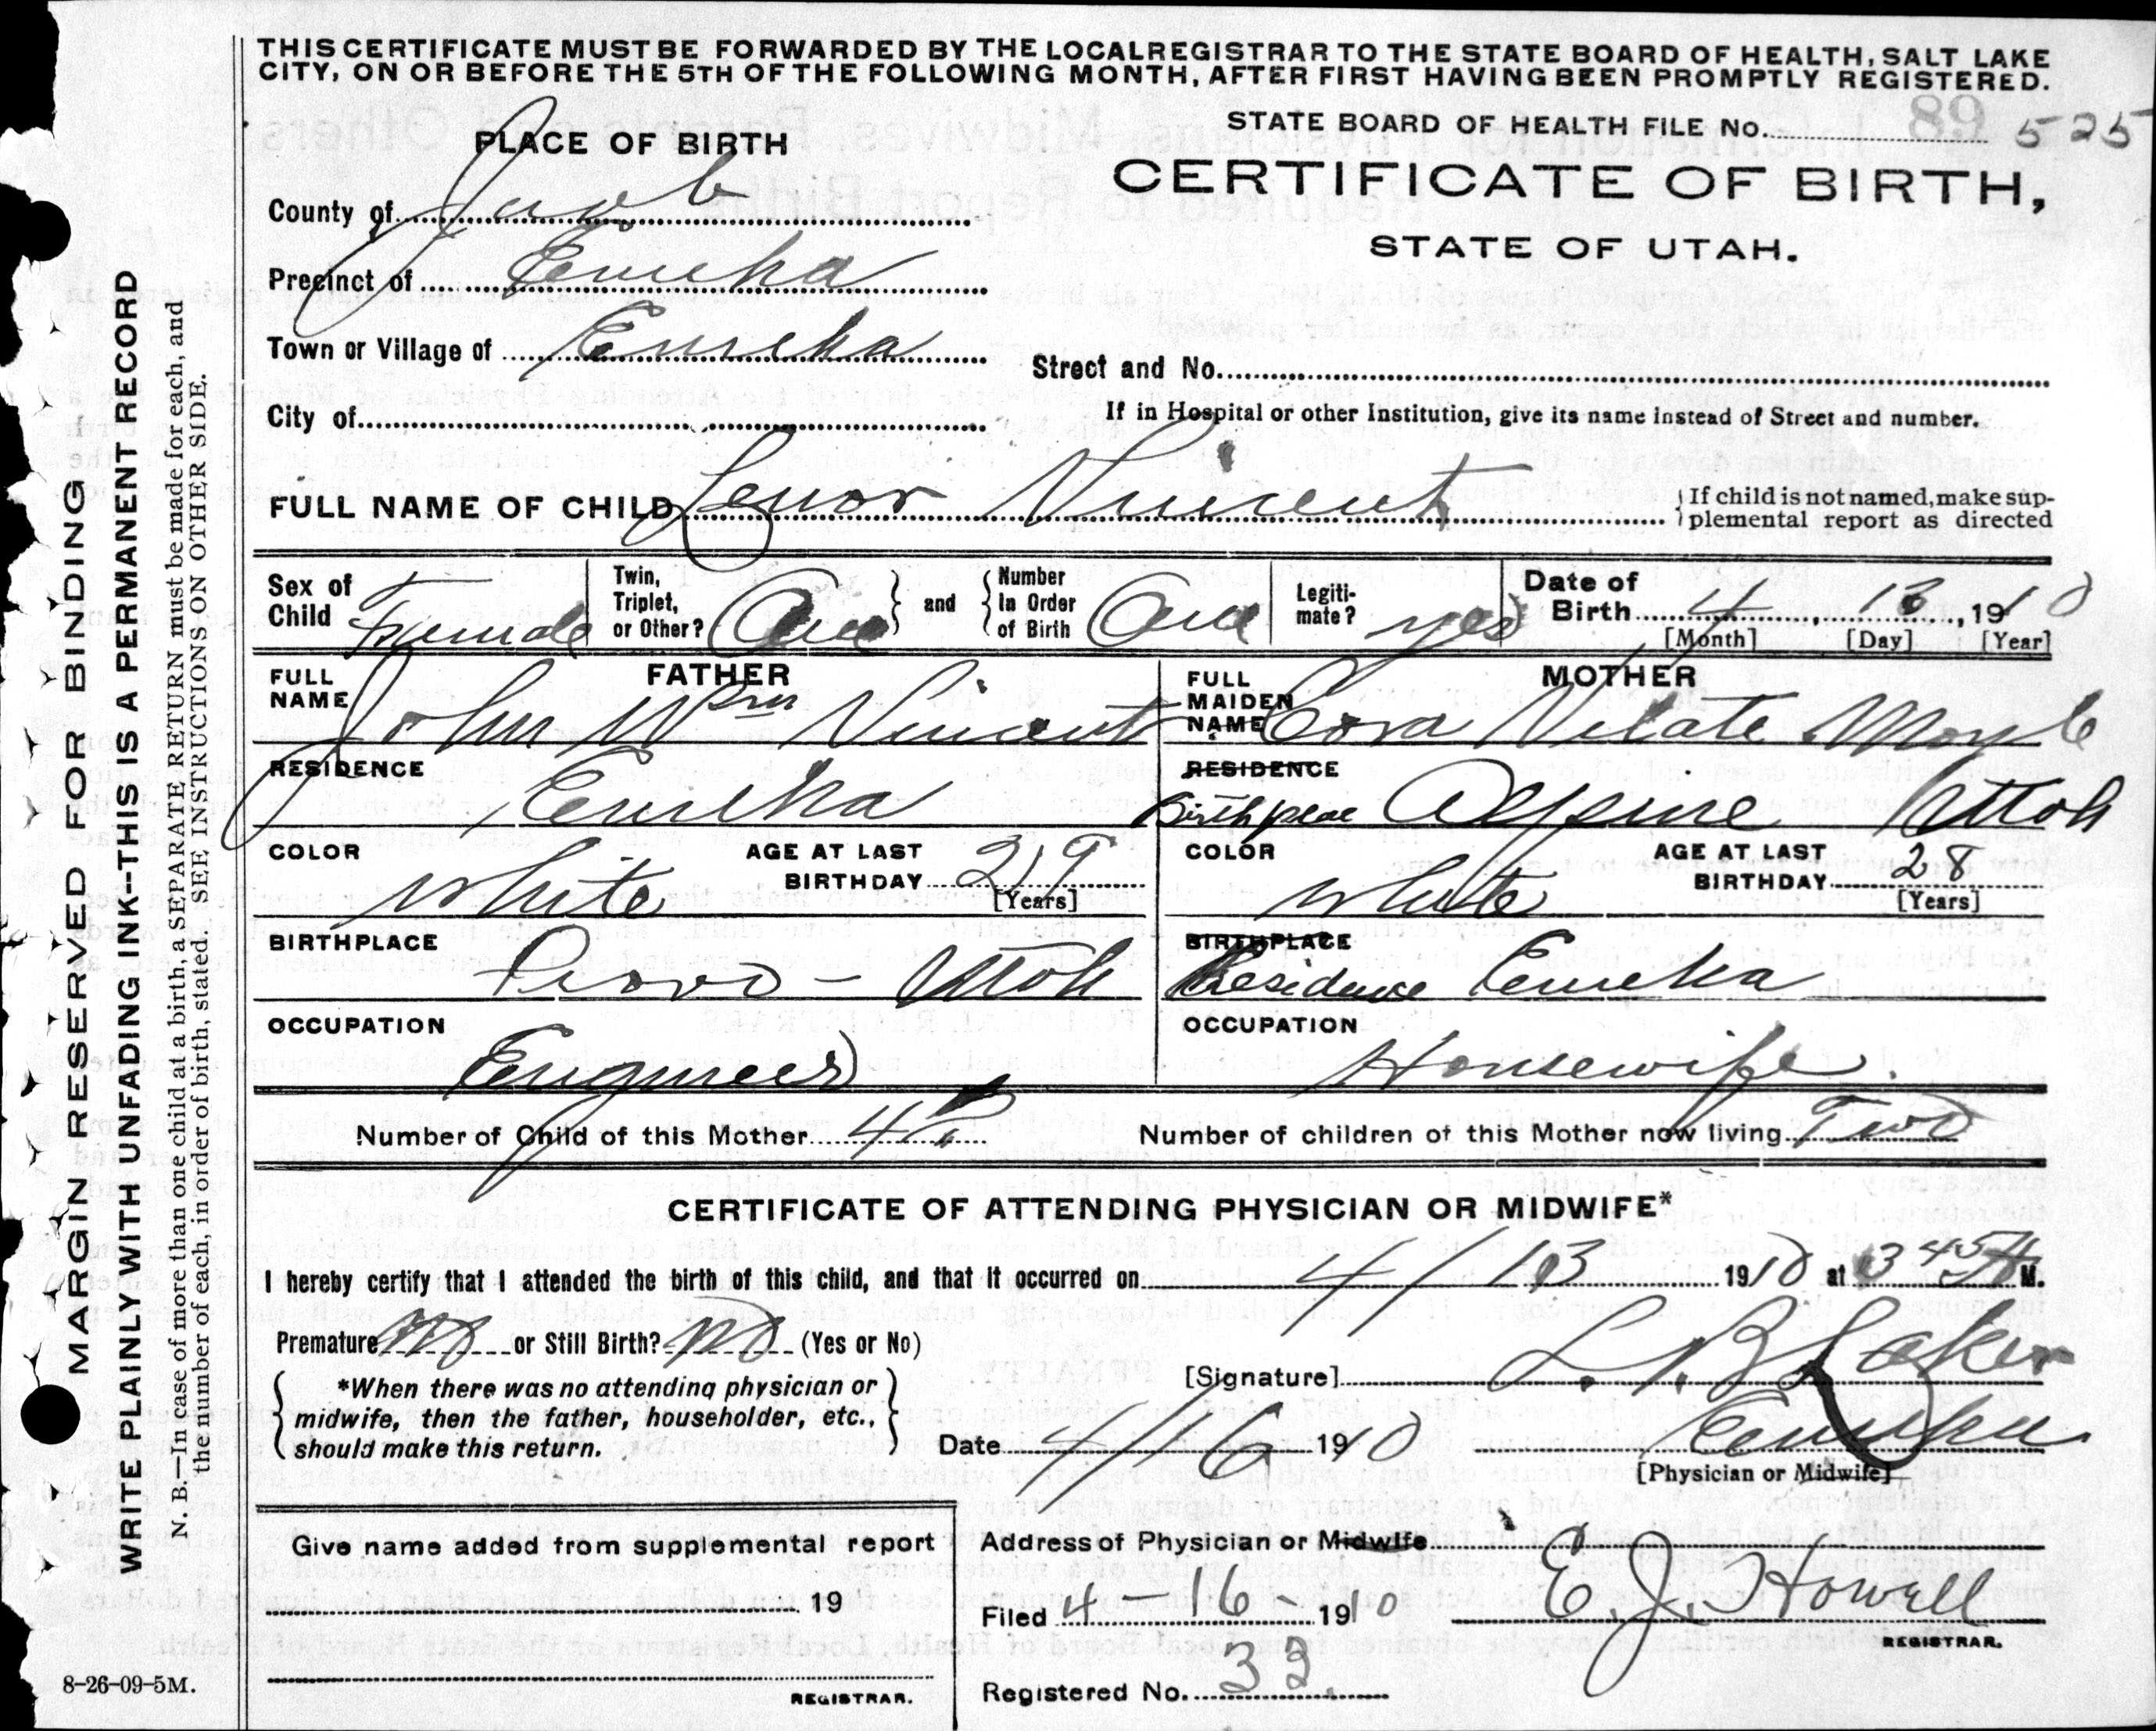 THIS CERTIFICATE MUST BE FORWARDED BY THE LOCAL REGISTRAR TO THE STATE BOARD OF HEALTH, SALT LAKE
CITY, ON OR BEFORE THE 5TH OF THE FOLLOWING MONTH, AFTER FIRST HAVING BEEN PROMPTLY REGISTERED.
STATE BOARD OF HEALTH FILE No. 89 525
PLACE OF BIRTH
CERTIFICATE OF BIRTH,
STATE OF UTAH.
County of Juab
Precinct of Eureka
Town or Village of Eureka
Street and No.
City of
If in Hospital or other Institution, give its name instead of Street and number.
FULL NAME OF CHILD Lenor Vincent
If child is not named, make sup-
plemental report as directed
Sex of Child Female
Twin, Triplet, or Other? One
and
Number In Order of Birth One
Legiti-mate? yes
Date of Birth 4, 13, 1910
[Month] [Day] [Year]
FATHER
FULL NAME John Wm Vincent
RESIDENCE Eureka
COLOR White
AGE AT LAST BIRTHDAY 29
[Years]
BIRTHPLACE Provo - Utah
OCCUPATION Engineer
MOTHER
FULL MAIDEN NAME Cora Vilate Moyle
RESIDENCE
Birthplace Alpine Utah
COLOR White
AGE AT LAST BIRTHDAY 28
[Years]
BIRTHPLACE
Residence Eureka
OCCUPATION Housewife
Number of Child of this Mother 4
Number of children of this Mother now living Two
CERTIFICATE OF ATTENDING PHYSICIAN OR MIDWIFE*
I hereby certify that I attended the birth of this child, and that it occurred on 4/13 1910 at 3 45 A M.
Premature No or Still Birth? No (Yes or No)
*When there was no attending physician or
midwife, then the father, householder, etc.,
should make this return.
[Signature] L. B. Laker
Date 4/16 1910 Eureka
[Physician or Midwife]
Give name added from supplemental report
19
REGISTRAR.
Address of Physician or Midwife
Filed 4-16-1910 E. J. Howell
REGISTRAR.
Registered No. 33
8-26-09-5M.
MARGIN RESERVED FOR BINDING
WRITE PLAINLY WITH UNFADING INK--THIS IS A PERMANENT RECORD
N. B.—In case of more than one child at a birth, a SEPARATE RETURN must be made for each, and
the number of each, in order of birth, stated. SEE INSTRUCTIONS ON OTHER SIDE.